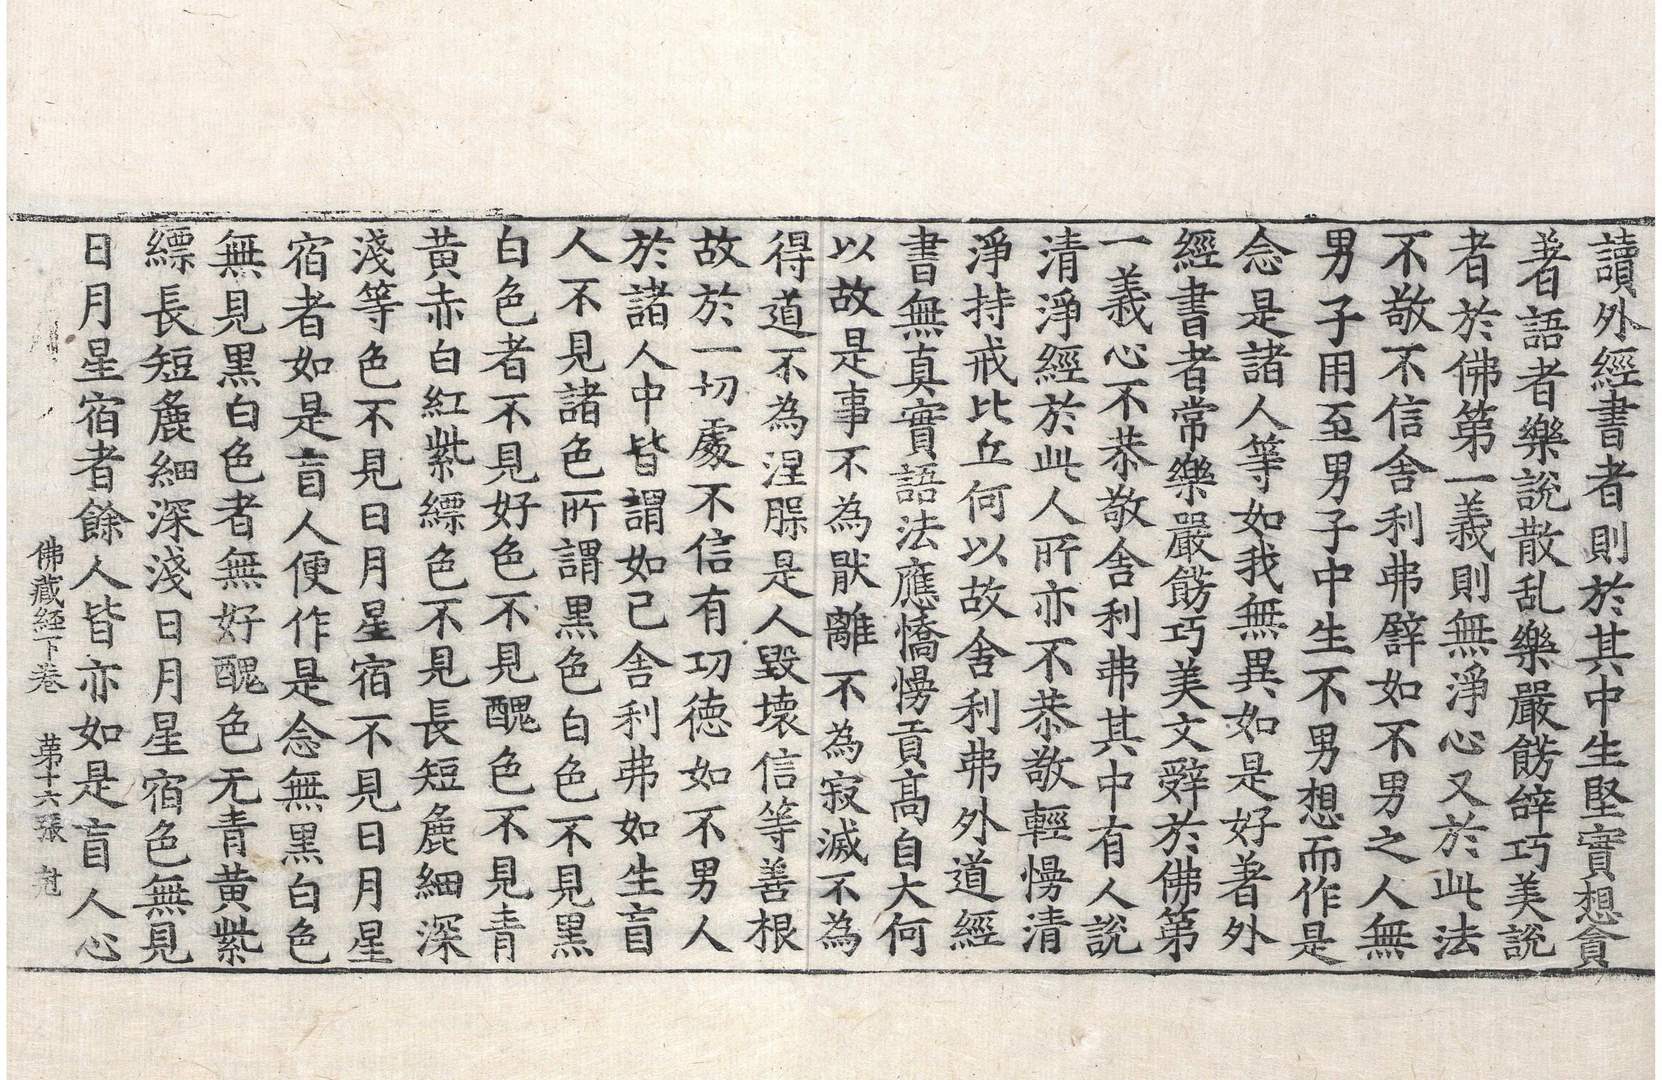 讀外經書者則於其中生堅實想貪
著語者樂說散乱樂嚴餝辝巧美說
者於佛第一義則無淨心又於此法
不敬不信舍利弗譬如不男之人無
男子用至男子中生不男想而作是
念是諸人等如我無異如是好著外
經書者常樂嚴餝巧美文辤於佛第
一義心不恭敬舍利弗其中有人說
清淨經於此人所亦不恭敬輕慢清
淨持戒比丘何以故舍利弗外道經
書無真實語法應憍慢貢高自大何
以故是事不為猒離不為寂滅不為
得道不為涅槃是人毀壞信等善根
故於一切處不信有功德如不男人
於諸人中皆謂如己舍利弗如生盲
人不見諸色所謂黑色白色不見黑
白色者不見好色不見醜色不見青
黃赤白紅紫縹色不見長短麁細深
淺等色不見日月星宿不見日月星
宿者如是盲人便作是念無黑白色
無見黑白色者無好醜色无青黃紫
縹長短麁細深淺日月星宿色無見
日月星宿者餘人皆亦如是盲人心
佛藏經下卷 第十六張